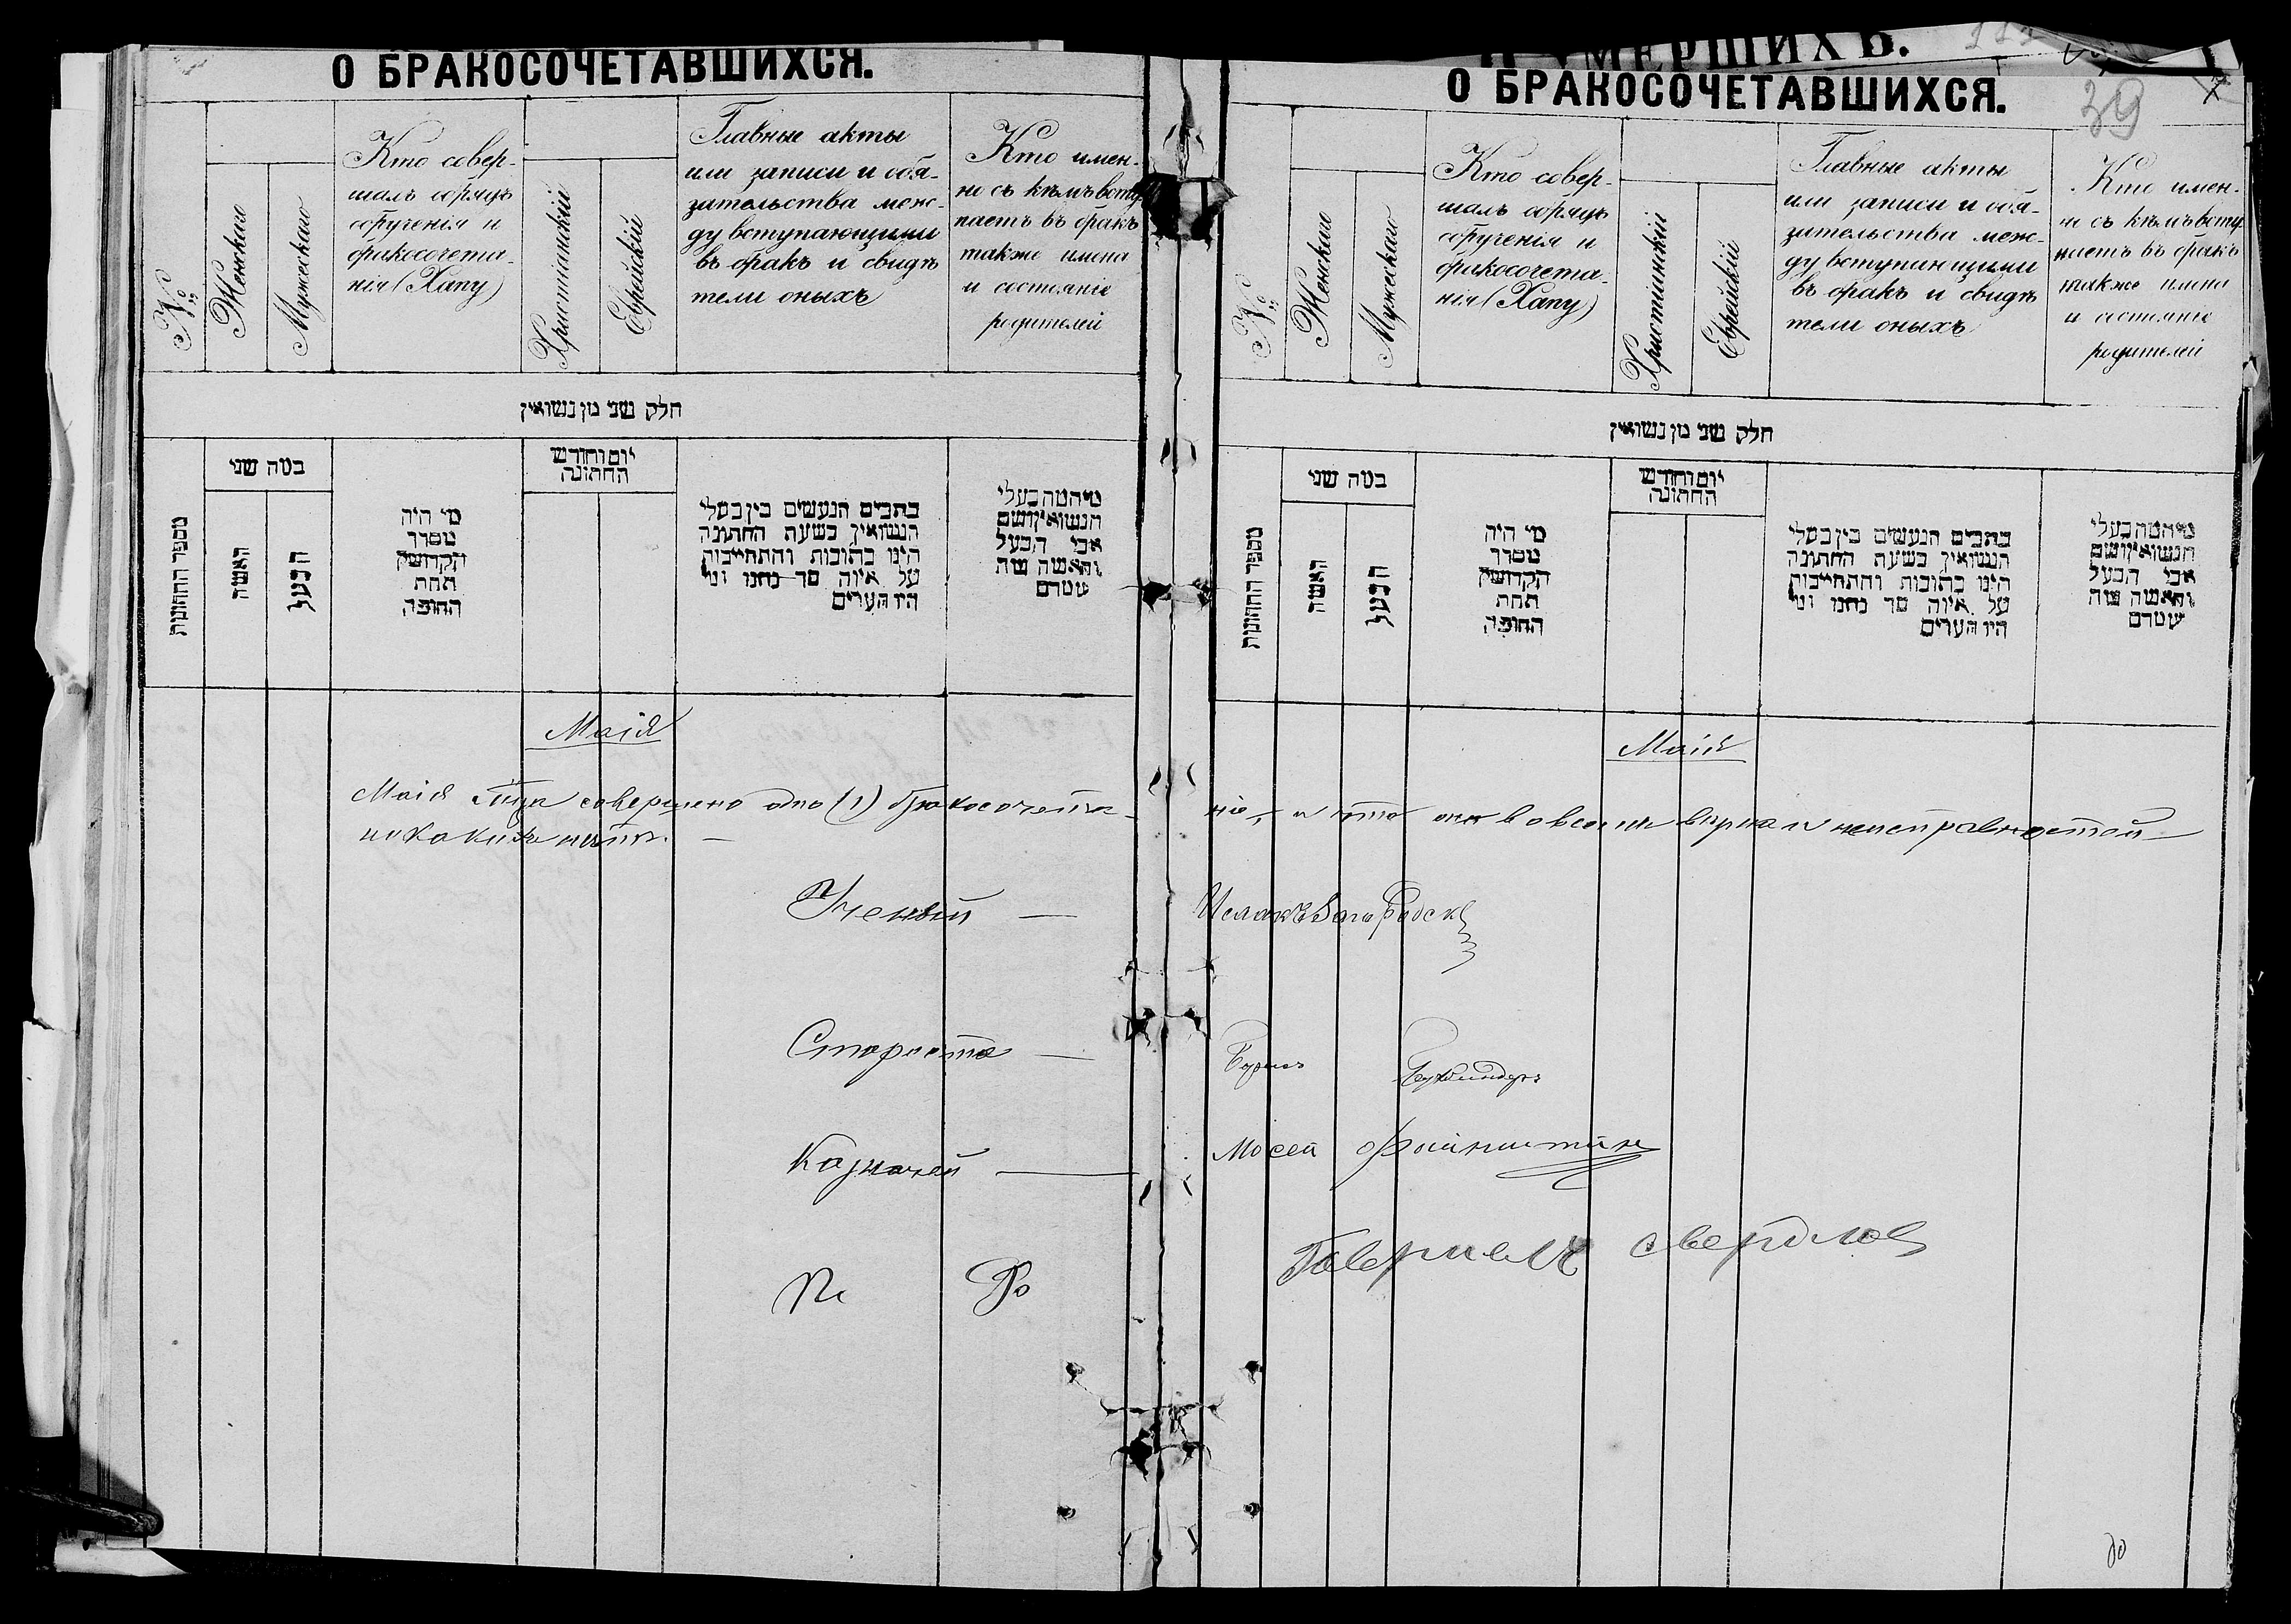 О БРАКОСОЧЕТАВШИХСЯ.
№
Женскаго
Мужескаго
Кто совер-
шалъ обрядъ
обрученія и
бракосочета-
нія (Хапу)
Христіанскій
Еврейскій
Главные акты
или записи и обя-
зательства меж-
ду вступающими
въ бракъ и свидѣ
тели оныхъ
Кто имен-
но съ кѣмъ всту
паетъ въ бракъ
также имена
и состояніе
родителей
חלק שני מן נשואין
מספר החתונות
במה שני
האשה
הבעל
מי היה
מסדר
הקדושין
תחת
החופה
יום וחודש
החתונה
כתבים הנעשים בין בעלי
הנשואין בשעת החתונה
הינו כתובות והתחייבות
על איזה סך נתנו ומי
היו העדים
מי המה בעלי
הנשואין ושם
אבי הבעל
והאשה ומה
שמרם
Маія
Маія мѣца совершено одно (1) бракосочета-
никакихъ нѣтъ. —
Ученый —
Староста —
Казначей —
О УМЕРШИХЪ.
О БРАКОСОЧЕТАВШИХСЯ.
39
№
Женскаго
Мужескаго
Кто совер-
шалъ обрядъ
обрученія и
бракосочета-
нія (Хапу)
Христіанскій
Еврейскій
Главные акты
или записи и обя-
зательства меж-
ду вступающими
въ бракъ и свидѣ
тели оныхъ
Кто имен-
но съ кѣмъ всту
паетъ въ бракъ
также имена
и состояніе
родителей
חלק שני מן נשואין
מספר החתונות
במה שני
האשה
הבעל
מי היה
מסדר
הקדושין
תחת
החופה
יום וחודש
החתונה
כתבים הנעשים בין בעלי
הנשואין בשעת החתונה
הינו כתובות והתחייבות
על איזה סך נתנו ומי
היו העדים
מי המה בעלי
הנשואין ושם
אבי הבעל
והאשה ומה
שמרם
Маія
ніе, и что во всемъ вѣрна и неисправностей
Исаакъ
Мосей Файнштейн
Гавриель Свердлов